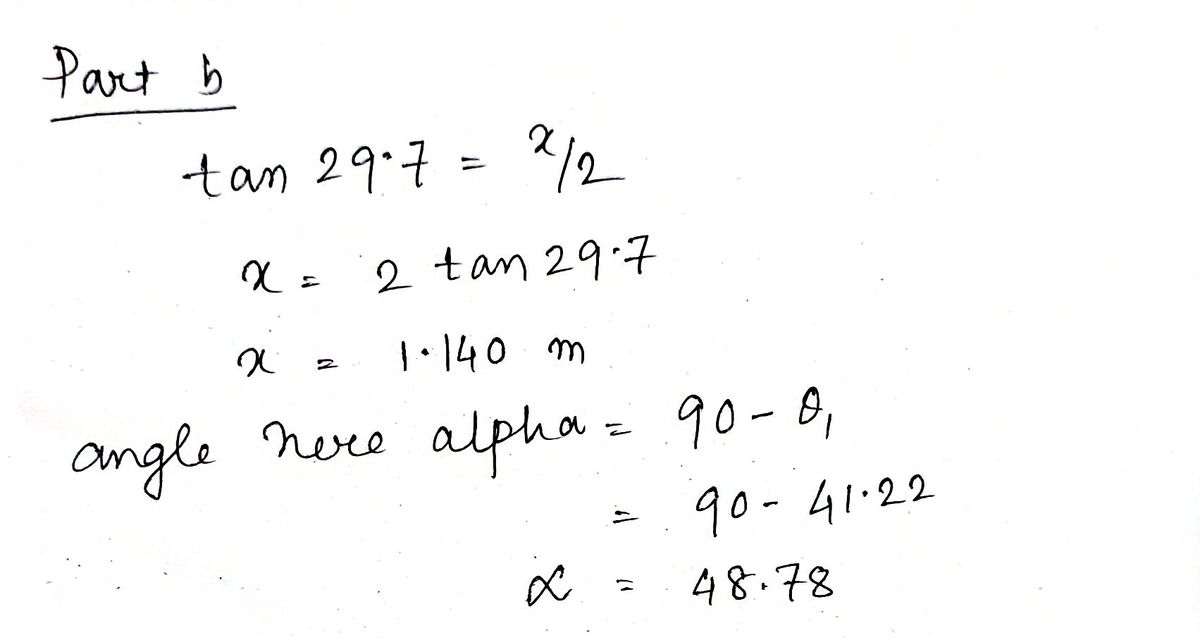 Part b
tan 29.7 = x/2
x = 2 tan 29.7
x = 1.140 m
angle here alpha = 90 - θ₁
= 90 - 41.22
α = 48.78